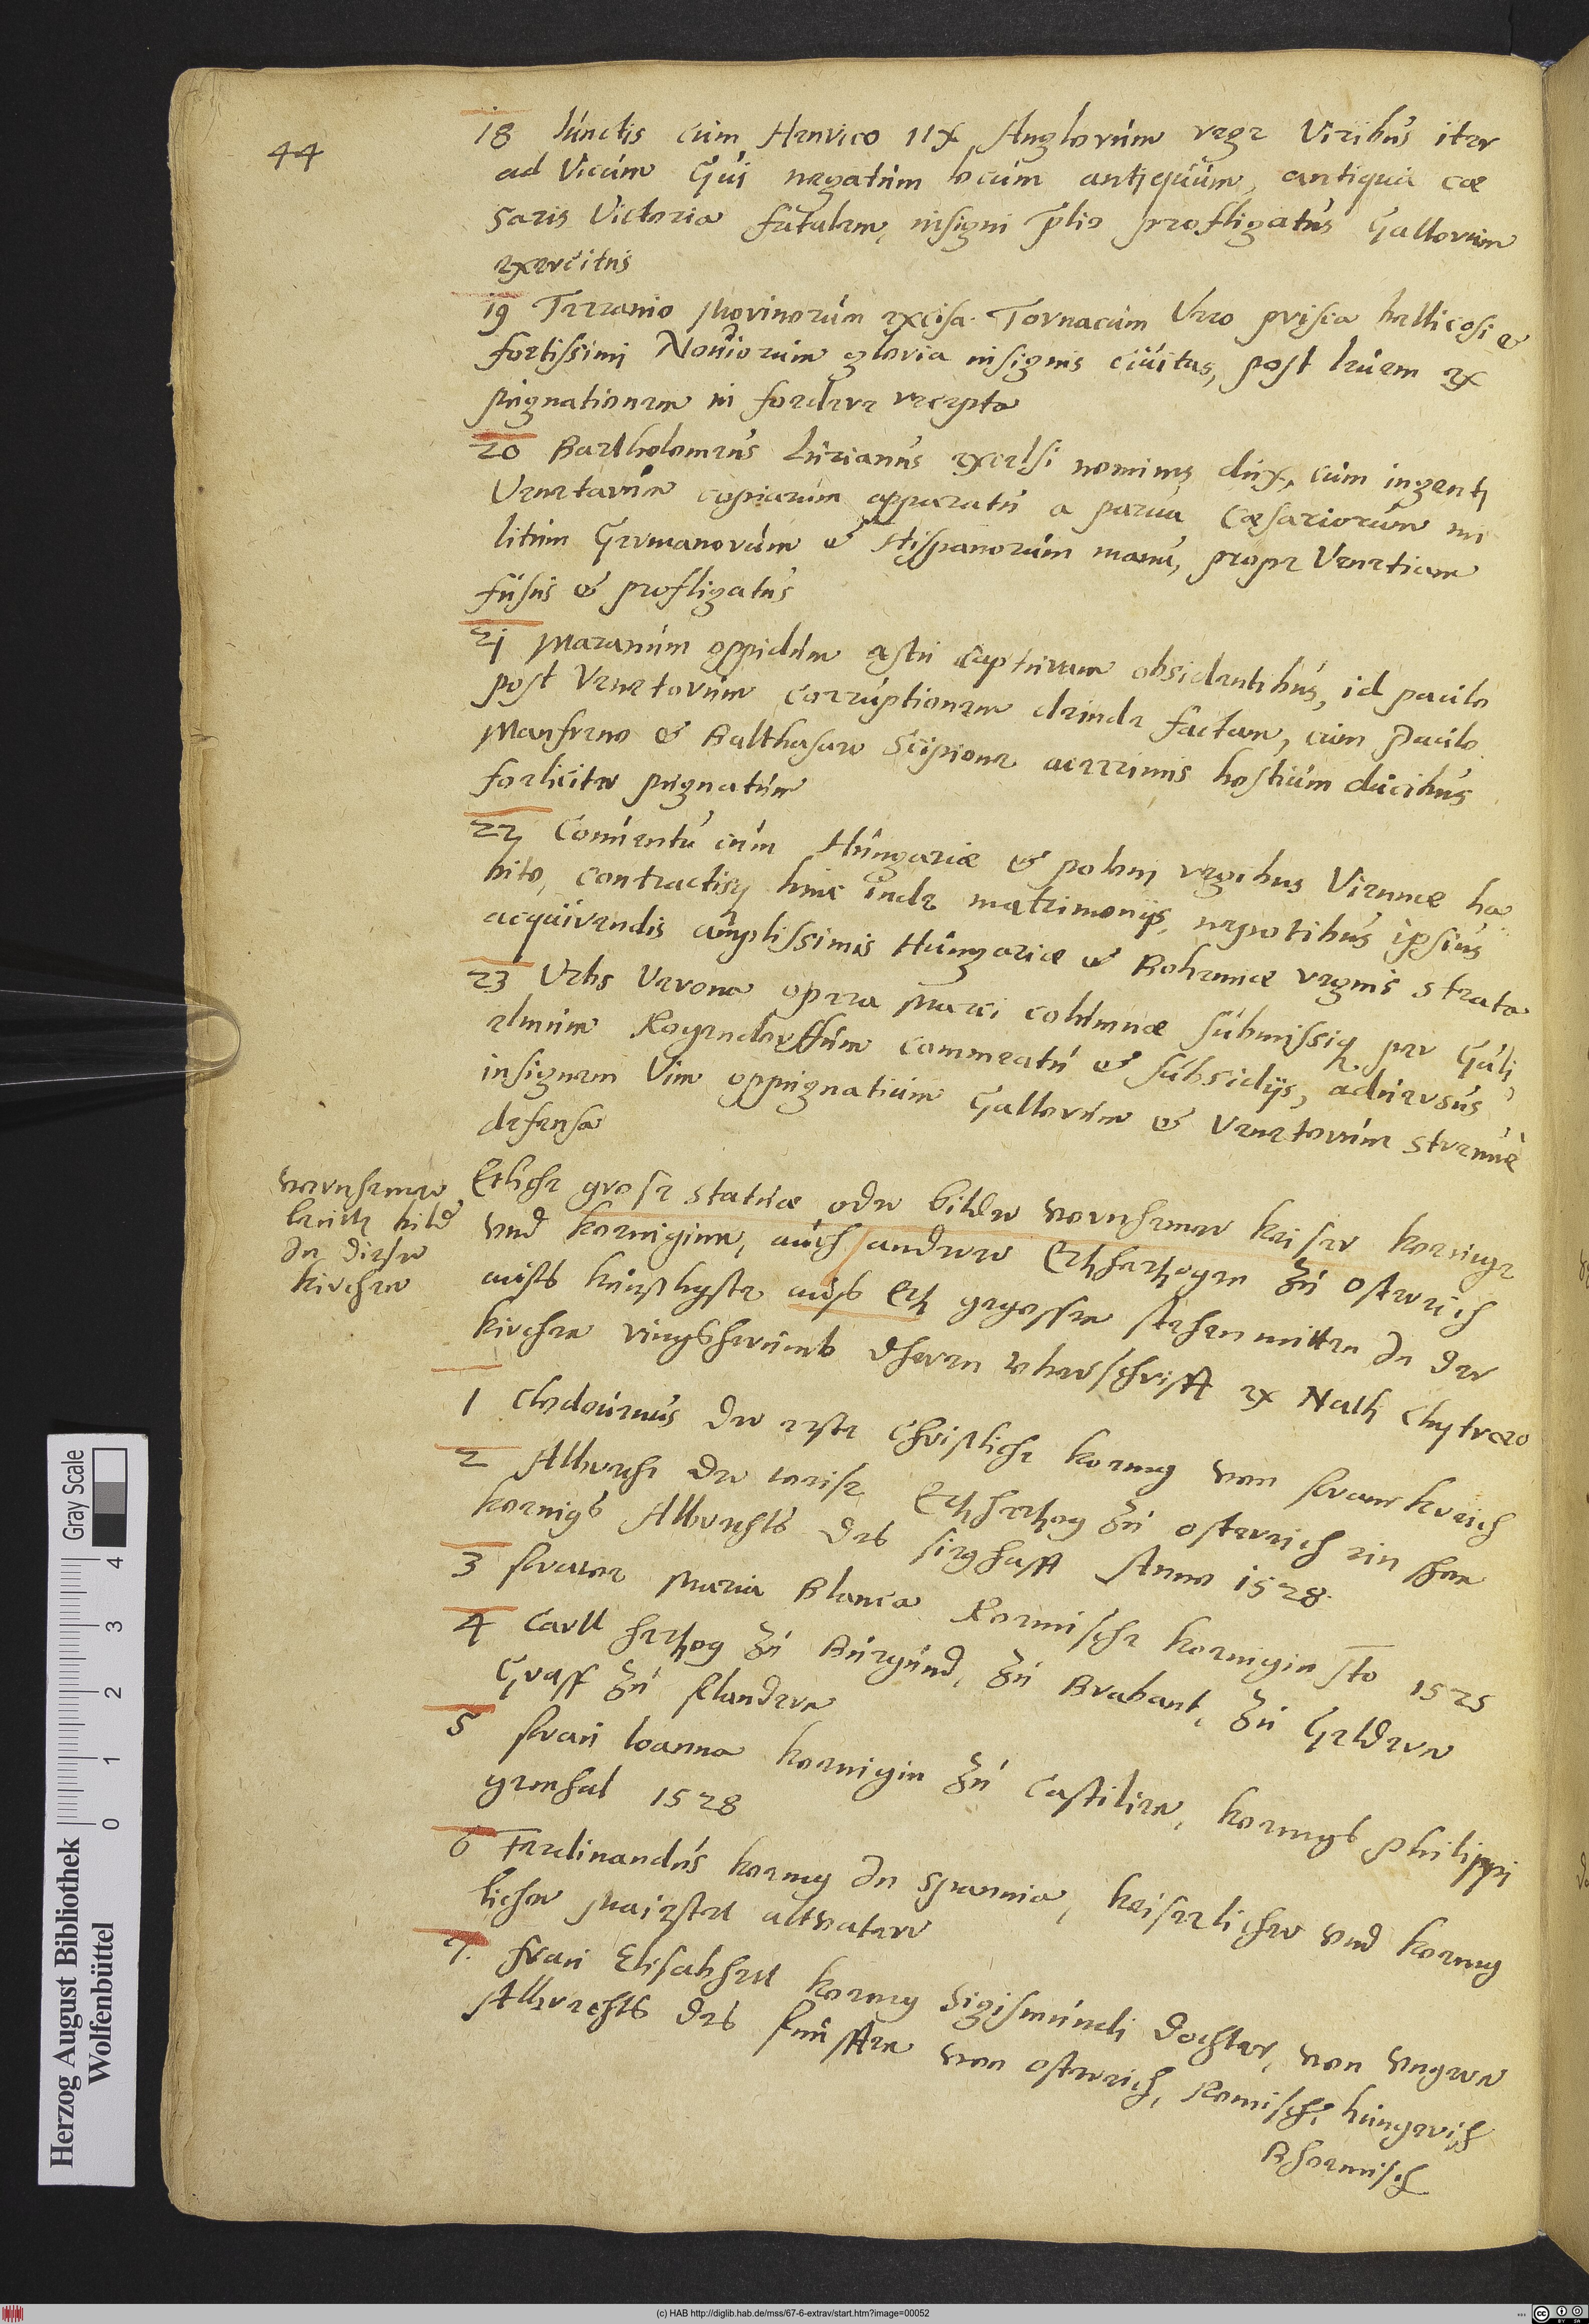 44
18 Iunctis cum Henrico IIX Anglorum rege Viribus iter
ad Vicum Gui negatum locum antiquum, antiqua cæ
saris Victoria fatalem, insigni plio profligatus Gallorum
exercitus
19 Tereanio Morinorum excisa. Tornacum Vero prisca bellicosi &
fortissimi Neruiorum gloria insignis ciuitas, post leuem ex
pugnationem in foedere recepta
20 Bartholomeus Liuianus excelsi nominis dux, cum ingenti
Venetarum copiarum apparatu a parua Cæsariorum mi
litum Germanorum & Hispanorum manu, prope Venetiam
fusus & profligatus
21 Maranum oppidum astu captiuum obsidentibus, id paulo
post Venetorum corruptionem deinde factam, cum Paulo
Manfreno & Balthasare Scipione acerrimis hostium ducibus
foeliciter pugnatum
22 Conuentu cum Hungariæ & poloni regibus Viennæ ha
bito, contractisq hinc inde matrimonijs, nepotibus ipsius
acquirendis amplissimis Hungariæ & Bohemiæ regnis strata
23 Vrbs Verona opera Marci columnæ submissiq per Guli
elmum Rogendorffum commeatu & subsidijs, aduersus
insignem Vim oppugnatium Gallorum & Venetorum strenuè
defensa
vernehmer
leutte bild
In dieser
kirchen
Etliche grose statuæ oder bilder vornehmer keiser koenige
vnd koeniginn, auch anderer Ertzhertzogen zu Osterreich
aufs künstlygste auss Ertz gegossen stehen mitten In der
kirchen ringsherumb Deren vberschrifft ex Nath Chytræo
1 Clodoueus der erste christliche koenig von franckreich
2 Albrecht der weise Ertzhertzog zu osterreich ein shon
koenigs Albrechts des sieghafft Anno 1528.
3 frawe Maria Blanca Roemische koenigin sto 1525
4 Carll hertzog zu Burgund, zu Brabant, zu Geldern
Graff zu flandern
5 frau Ioanna koenigin zu Castilien, koenigs philippi
gemhal 1528
6 Ferdinandus koenig In Spannia, keiserlicher vnd koenig
licher Maiestet altvatere
7. frau Elisabhett koenig Sigismundi dochter, von vngern
Albrechts des funfften von osterreich, Romisch, hungerisch
Bhoemisch
Herzog August Bibliothek
Wolfenbüttel
Gray Scale
0 1 2 3 4
(c) HAB http://diglib.hab.de/mss/67-6-extrav/start.htm?image=00052